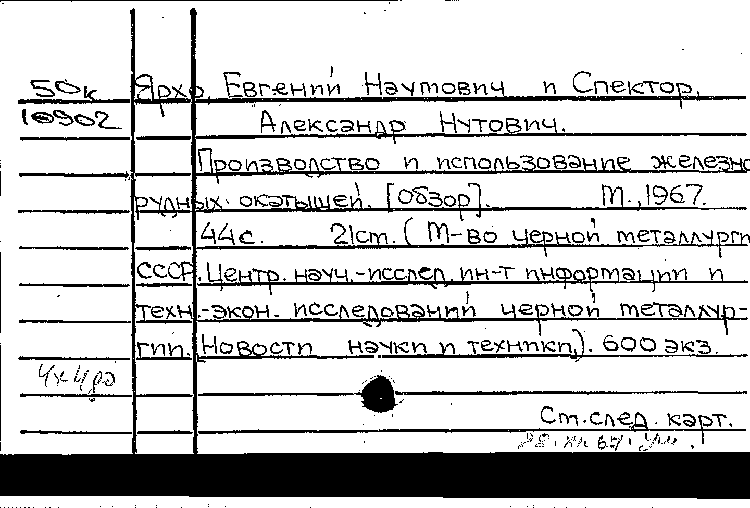 50к Ярхо, Евгений Наумович и Спектор,
10902 Александр Нутович.
Производство и использование железно
рудных окатышей. [Обзор]. М., 1967.
44 с. 21 см. (М-во черной металлурги
СССР. Центр. науч.-исслед. ин-т информации и
техн.-экон. исследований черной металлур-
гии. Новости науки и техники). 600 экз.
Ст. след. карт.